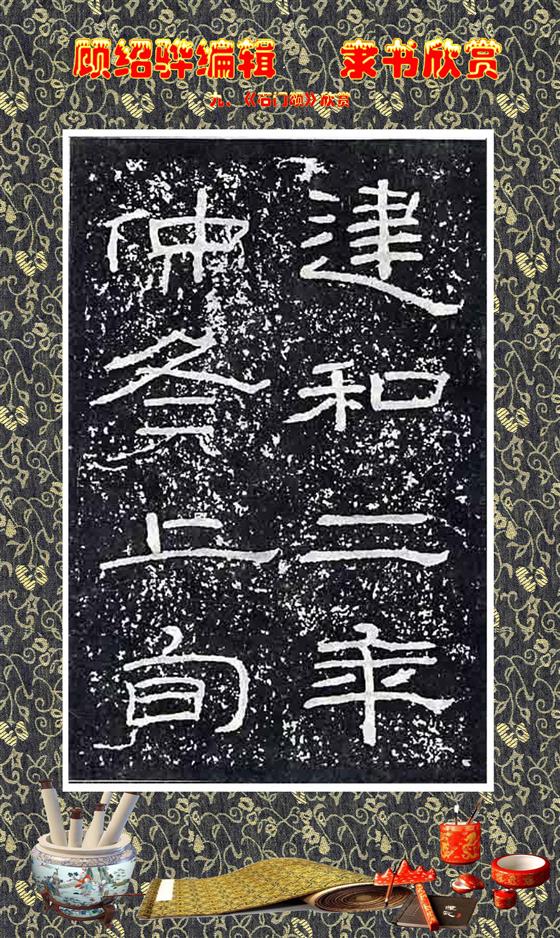 顾绍骅编辑 隶书欣赏
九、《石门颂》欣赏
建和二年
仲冬上旬